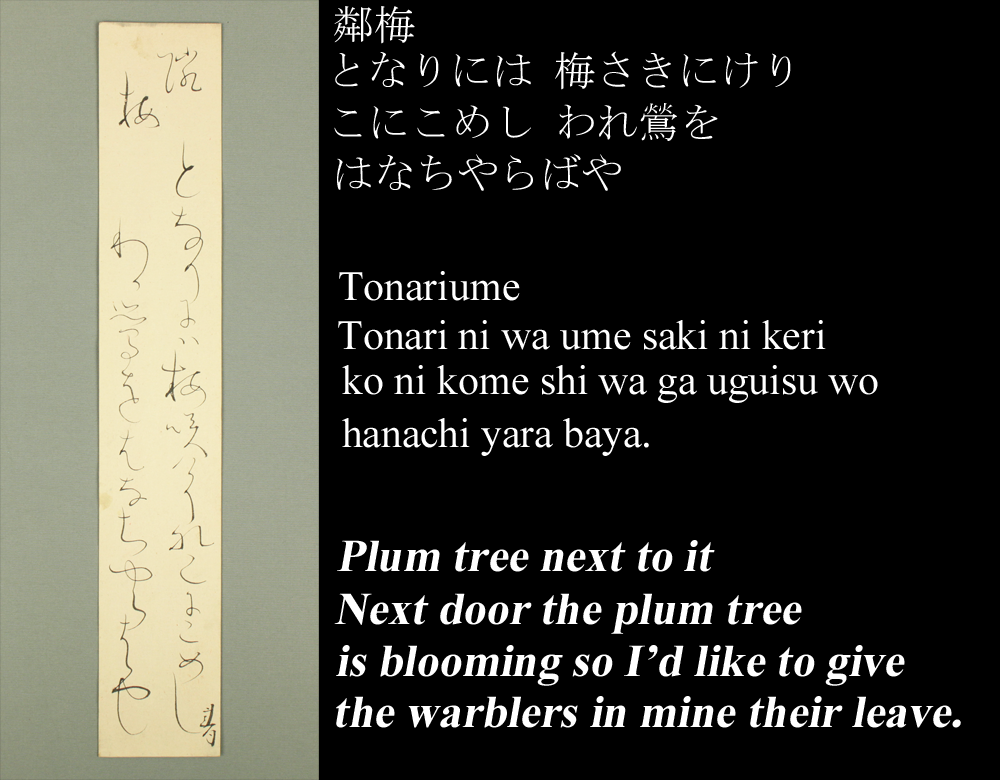 隣
梅
となりには梅咲 こにこめし
わか鶯をはなちやらはや
鄰梅
となりには 梅さきにけり
こにこめし われ鶯を
はなちやらばや
Tonariume
Tonari ni wa ume saki ni keri
ko ni kome shi wa ga uguisu wo
hanachi yara baya.
Plum tree next to it
Next door the plum tree
is blooming so I’d like to give
the warblers in mine their leave.